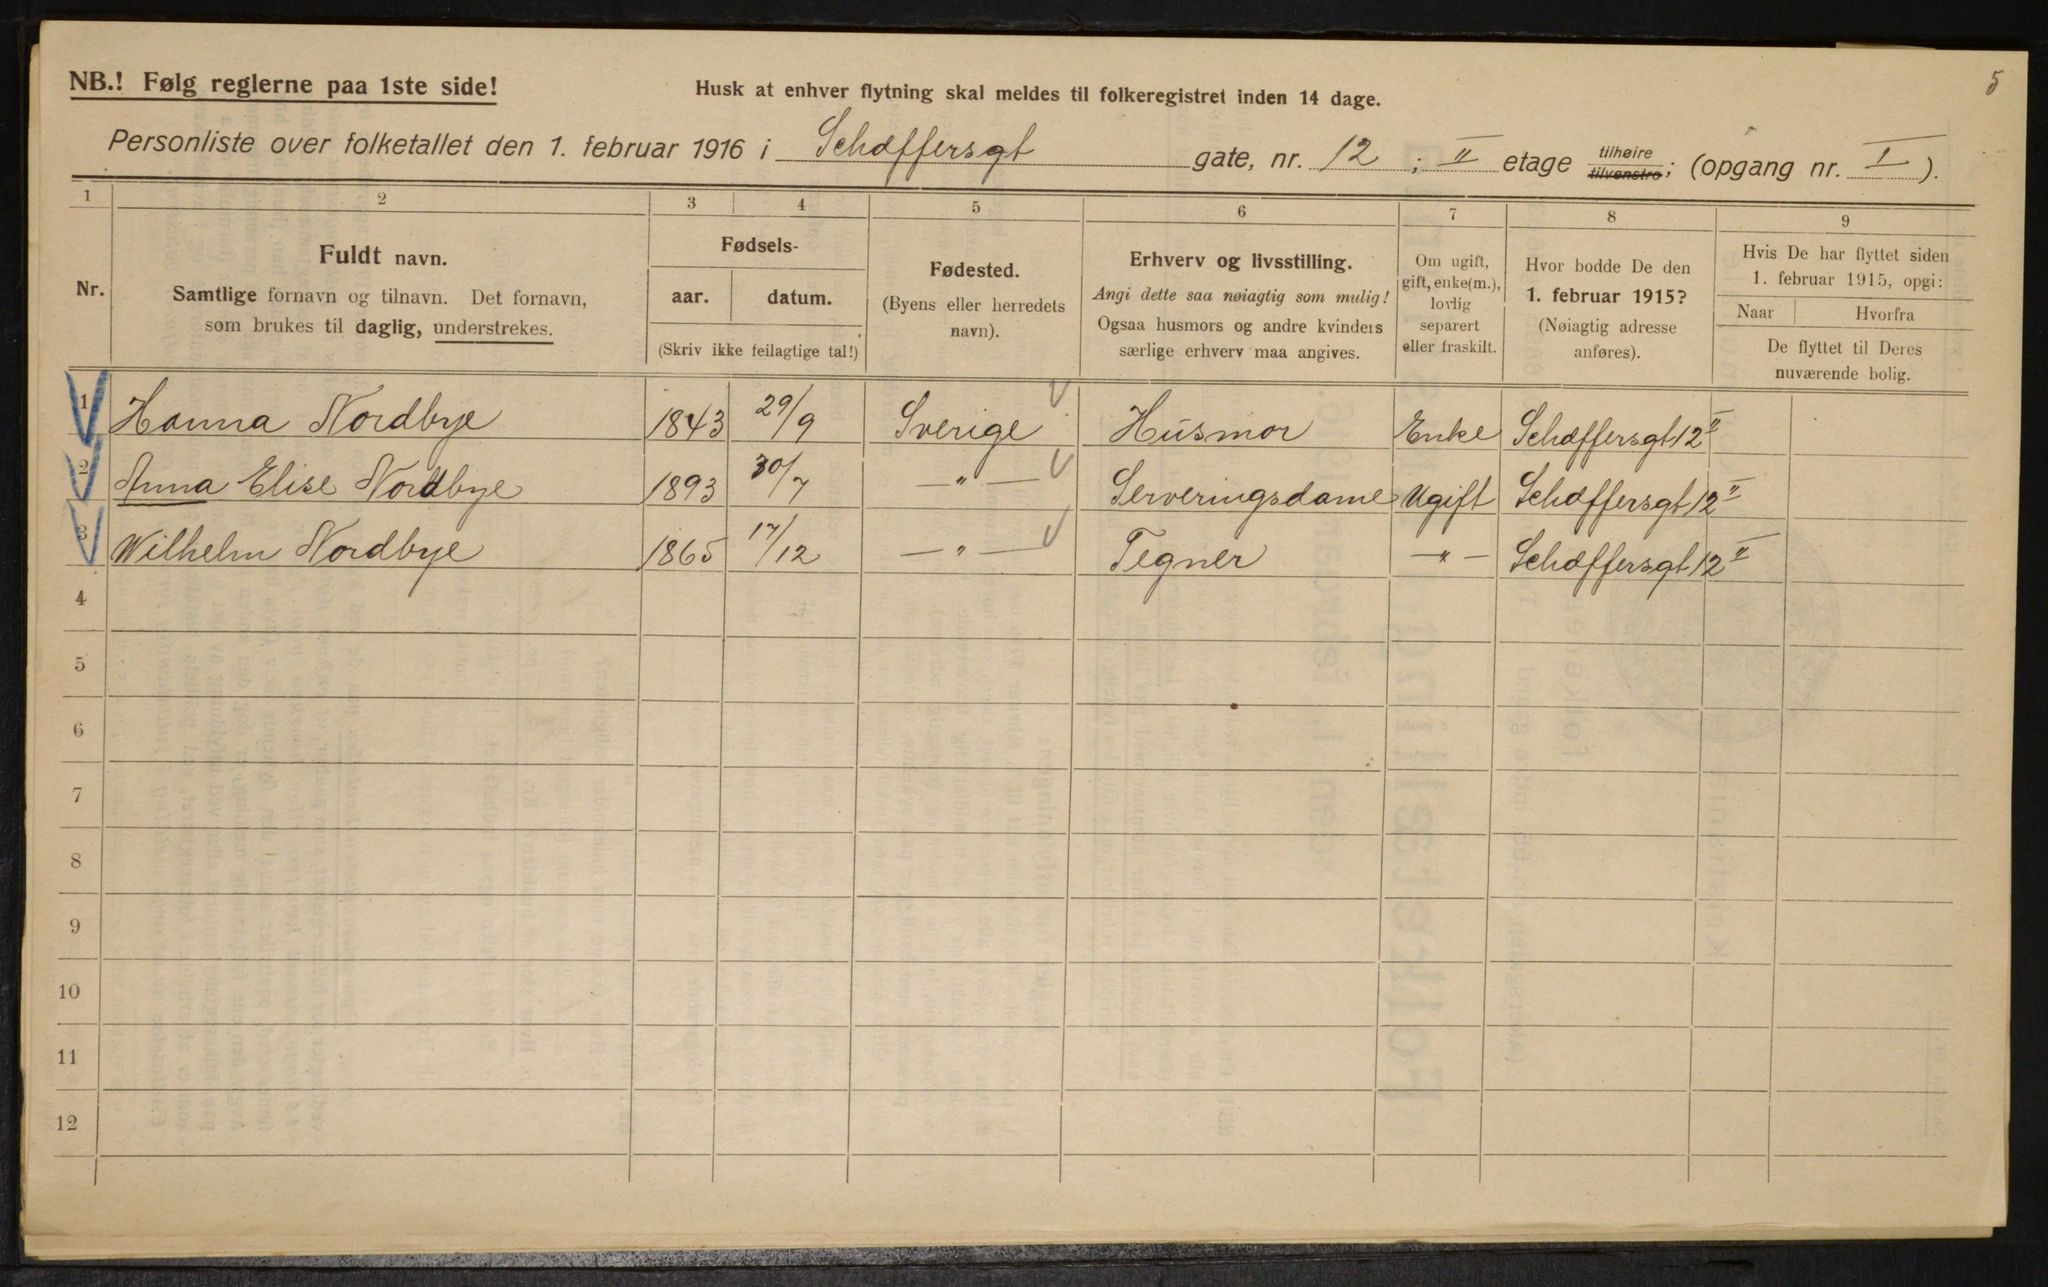 5
NB.! Følg reglerne paa 1ste side!
Husk at enhver flytning skal meldes til folkeregistret inden 14 dage.
Personliste over folketallet den 1. februar 1916 i Schæffersgt gate, nr. 12 ; II etage tilhøire tilvenstre; (opgang nr. I ).
1 2 3 4 5 6 7 8 9
Nr.
Fuldt navn.
Samtlige fornavn og tilnavn. Det fornavn,
som brukes til daglig, understrekes.
Fødsels-
aar. datum.
(Skriv ikke feilagtige tal!)
Fødested.
(Byens eller herredets
navn).
Erhverv og livsstilling.
Angi dette saa nøiagtig som mulig!
Ogsaa husmors og andre kvinders
særlige erhverv maa angives.
Om ugift,
gift, enke(m.),
lovlig
separert
eller fraskilt.
Hvor bodde De den
1. februar 1915?
(Nøiagtig adresse
anføres).
Hvis De har flyttet siden
1. februar 1915, opgi:
Naar Hvorfra
De flyttet til Deres
nuværende bolig.
1 Hanna Nordbye 1843 29/9 Sverige Husmor Enke Schæffersgt 12 II
2 Anna Elise Nordbye 1893 30/7 —„— Serveringsdame Ugift Schæffersgt 12 II
3 Wilhelm Nordbye 1865 17/12 —„— Tegner —„— Schæffersgt 12 II
4
5
6
7
8
9
10
11
12